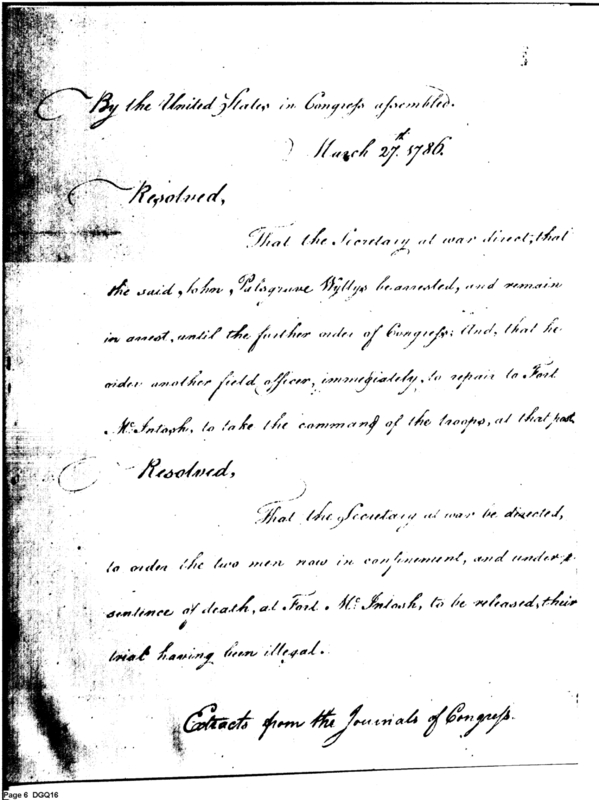 By the United States in Congress assembled.
March 27.th 1786.
Resolved,
That the Secretary at war direct, that
the said, John, Palsgrave Wyllys be arrested, and remain
in arrest, until the further order of Congress; And, that he
order another field officer, immediately, to repair to Fort
Mc. Intosh, to take the command of the troops, at that post.
Resolved,
That the Secretary at war be directed,
to order the two men now in confinement, and under
sentence of death, at Fort Mc. Intosh, to be released, their
trial having been illegal.
Extracts from the Journals of Congress.
Page 6 DGQ16